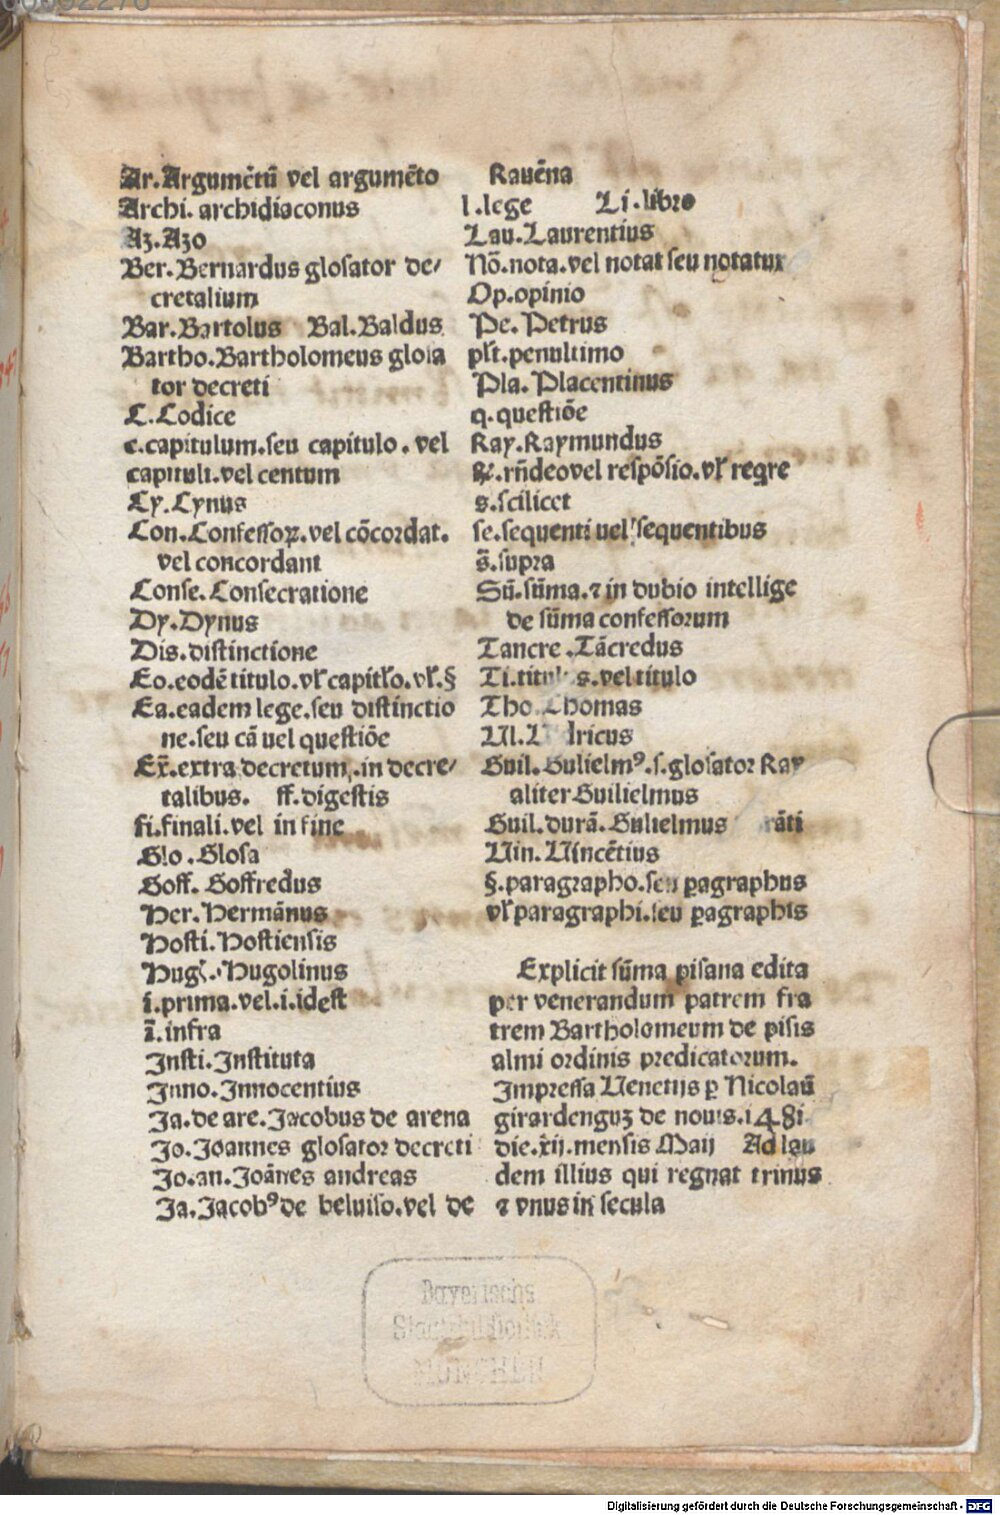 Ar. Argumētū vel argumēto
Archi. archidiaconus
Az. Azo
Ber. Bernardus glosator de/
cretalium
Bar. Bartolus Bal. Baldus
Bartho. Bartholomeus glosa
tor decreti
C. Codice
c. capitulum. seu capitulo. vel
capituli. vel centum
Cy. Cynus
Con. Confessoꝝ. vel cōcordat.
vel concordant
Conse. Consecratione
Dy. Dynus
Dis. distinctione
Eo. eodē titulo. vł capitło. vł. §
Ea. eadem lege. seu distinctio
ne. seu cā uel questiōe
Ex̄. extra decretum. in decre/
talibus. ff. digestis
fi. finali. vel in fine
Glo. Glosa
Goff. Goffredus
Her. Hermānus
Hosti. Hostiensis
Hug. Hugolinus
i. prima. vel. i. idest
ī. infra
Insti. Instituta
Inno. Innocentius
Ja. de are. Jacobus de arena
Jo. Joannes glosator decreti
Jo. an. Joānes andreas
Ja. Jacobꝰ de beluiso. vel de
Rauēna
l. lege Li. libro
Lau. Laurentius
Nō. nota. vel notat seu notatur
Op. opinio
Pe. Petrus
płt. penultimo
Pla. Placentinus
q. questiōe
Ray. Raymundus
℟. rn̄deo vel respōsio. vł reqre
s. scilicet
se. sequenti uel sequentibus
s̄. supra
Sū. sūma. ⁊ in dubio intellige
de sūma confessorum
Tancre. Tācredus
Ti. titulus. vel titulo
Tho. Thomas
Ul. dricus
Guil. Gulielmꝰ. s. glosator Ray
aliter Guilielmus
Guil. durā. Gulielmus rāti
Uin. Uincētius
§. paragrapho. seu ꝑagraphus
vł paragraphi. seu ꝑagraphis
Explicit sūma pisana edita
per venerandum patrem fra
trem Bartholomeum de pisis
almi ordinis predicatorum.
Impressa Uenetijs ꝑ Nicolaū
girardenguꝫ de nouis. 1481
die. xij. mensis Maij Ad lau
dem illius qui regnat trinus
⁊ vnus in secula
Bayerische
Staatsbibliothek
MÜNCHEN
Digitalisierung gefördert durch die Deutsche Forschungsgemeinschaft - DFG